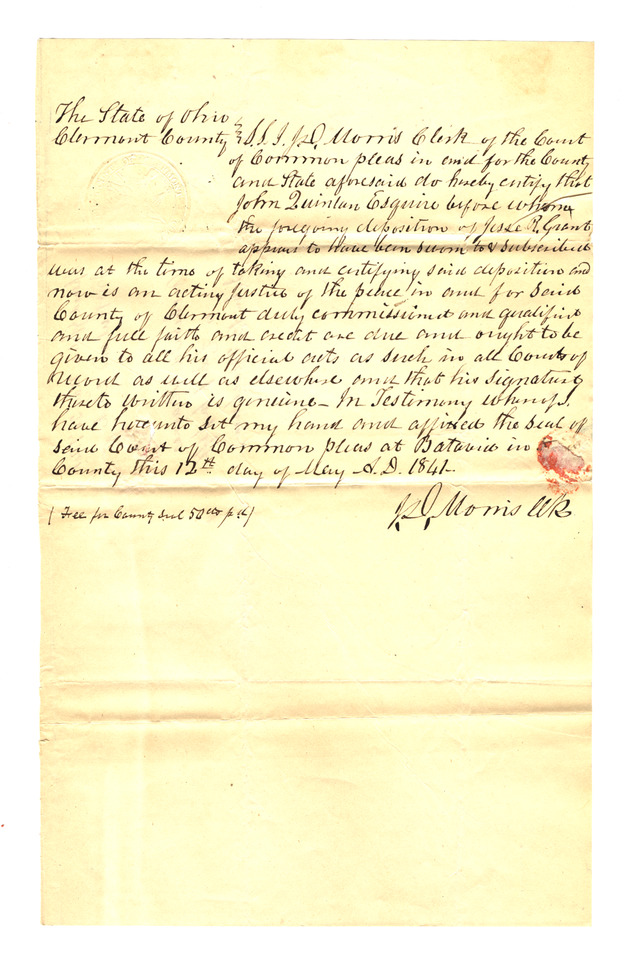 The State of Ohio
Clermont County } S.S. I, J. D. Morris Clerk of the Court
of Common pleas in and for the County
and State aforesaid do hereby certify that
John Quinlan Esquire before whom
the foregoing deposition of Jesse R. Grant
appears to have been sworn to & subscribed
was at the time of taking and certifying said deposition and
now is an acting Justice of the peace in and for said
County of Clermont duly commissioned and qualified
and full faith and credit are due and ought to be
given to all his official acts as such in all Courts of
Record as well as elsewhere and that his signature
thereto written is genuine – In Testimony whereof I
have hereunto set my hand and affixed the seal of
said Court of Common pleas at Batavia in
County this 12th day of May A.D. 1841.
J. D. Morris Clk
( Fee for County Seal 50 cts pd )